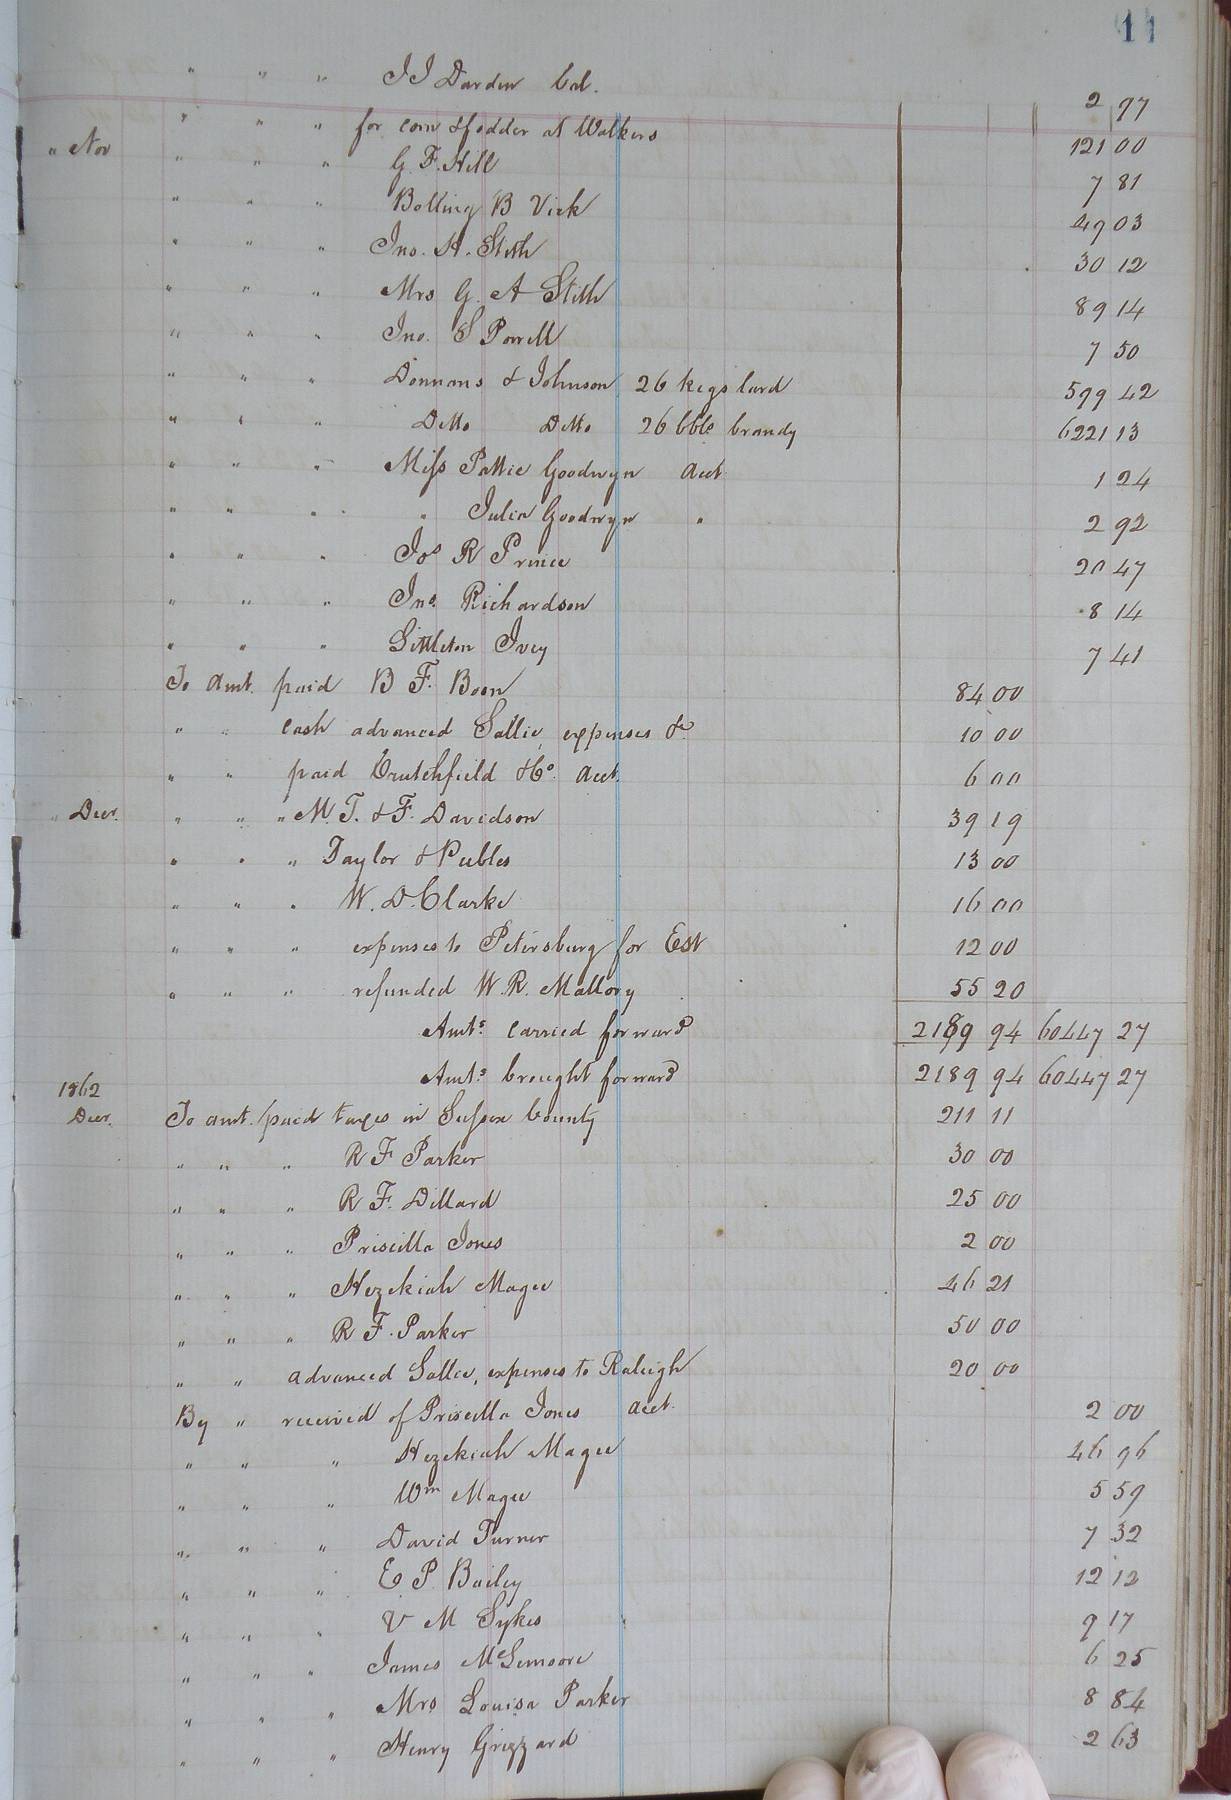 11
" " " J J Darden bal. 2 97
" " " for corn & fodder at Walkers 121 00
" Nov " " " G. F. Hill 7 81
" " " Bolling B Vick 49 03
" " " Jno. H. Stith 30 12
" " " Mrs G. A Stith 89 14
" " " Jno. S Powell 7 50
" " " Donnans & Johnson 26 kegs lard 599 42
" " " Ditto Ditto 26 bbls brandy 6221 13
" " " Miss Pattie Goodwyn acct 1 24
" " " " Julia Goodwyn " 2 92
" " " Jos R Prince 20 47
" " " Jno. Richardson 8 14
" " " Littleton Ivey 7 41
To amt. paid B F. Boon 84 00
" " cash advanced Sallie, expenses &c 10 00
" " paid Crutchfield & Co. acct. 6 00
" Decr. " " " M. T. & F. Davidson 39 19
" " " Taylor & Peebles 13 00
" " " W. D. Clarke 16 00
" " " expenses to Petersburg for Est 12 00
" " " refunded W. R. Mallory 55 20
Amts. carried forward 2189 94 60447 27
Amts. brought forward 2189 94 60447 27
1862
Decr. To amt. paid taxes in Sussex County 211 11
" " " R F Parker 30 00
" " " R F. Dillard 25 00
" " " Priscilla Jones 2 00
" " " Hezekiah Magee 46 21
" " " R F. Parker 50 00
" " advanced Sallie, expenses to Raleigh 20 00
By " received of Priscilla Jones acct. 2 00
" " " Hezekiah Magee 46 96
" " " Wm Magee 5 59
" " " David Turner 7 32
" " " E P. Bailey 12 12
" " " V M Sykes 9 17
" " " James McLemoore 6 25
" " " Mrs Louisa Parker 8 84
" " " Henry Grizzard 2 63